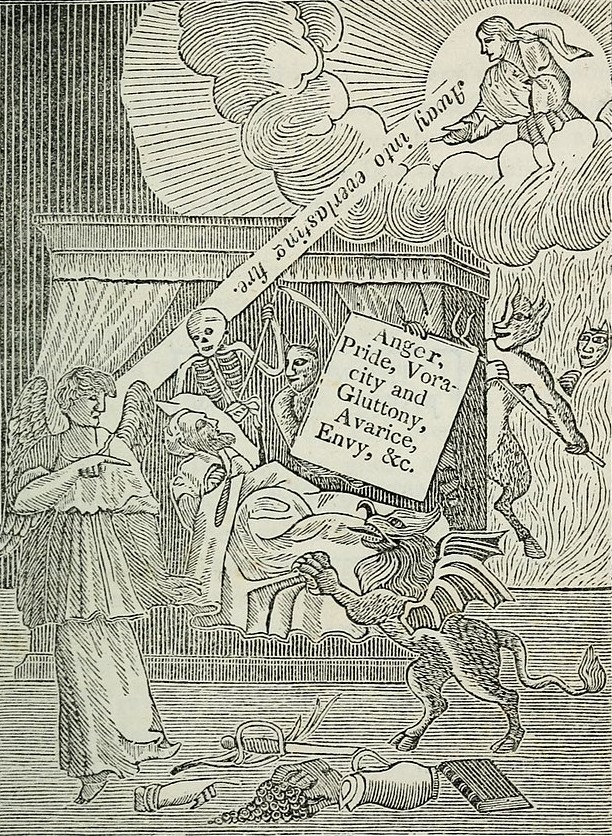 Away into everlasting fire.
Anger,
Pride, Vora-
city and
Gluttony,
Avarice,
Envy, &c.